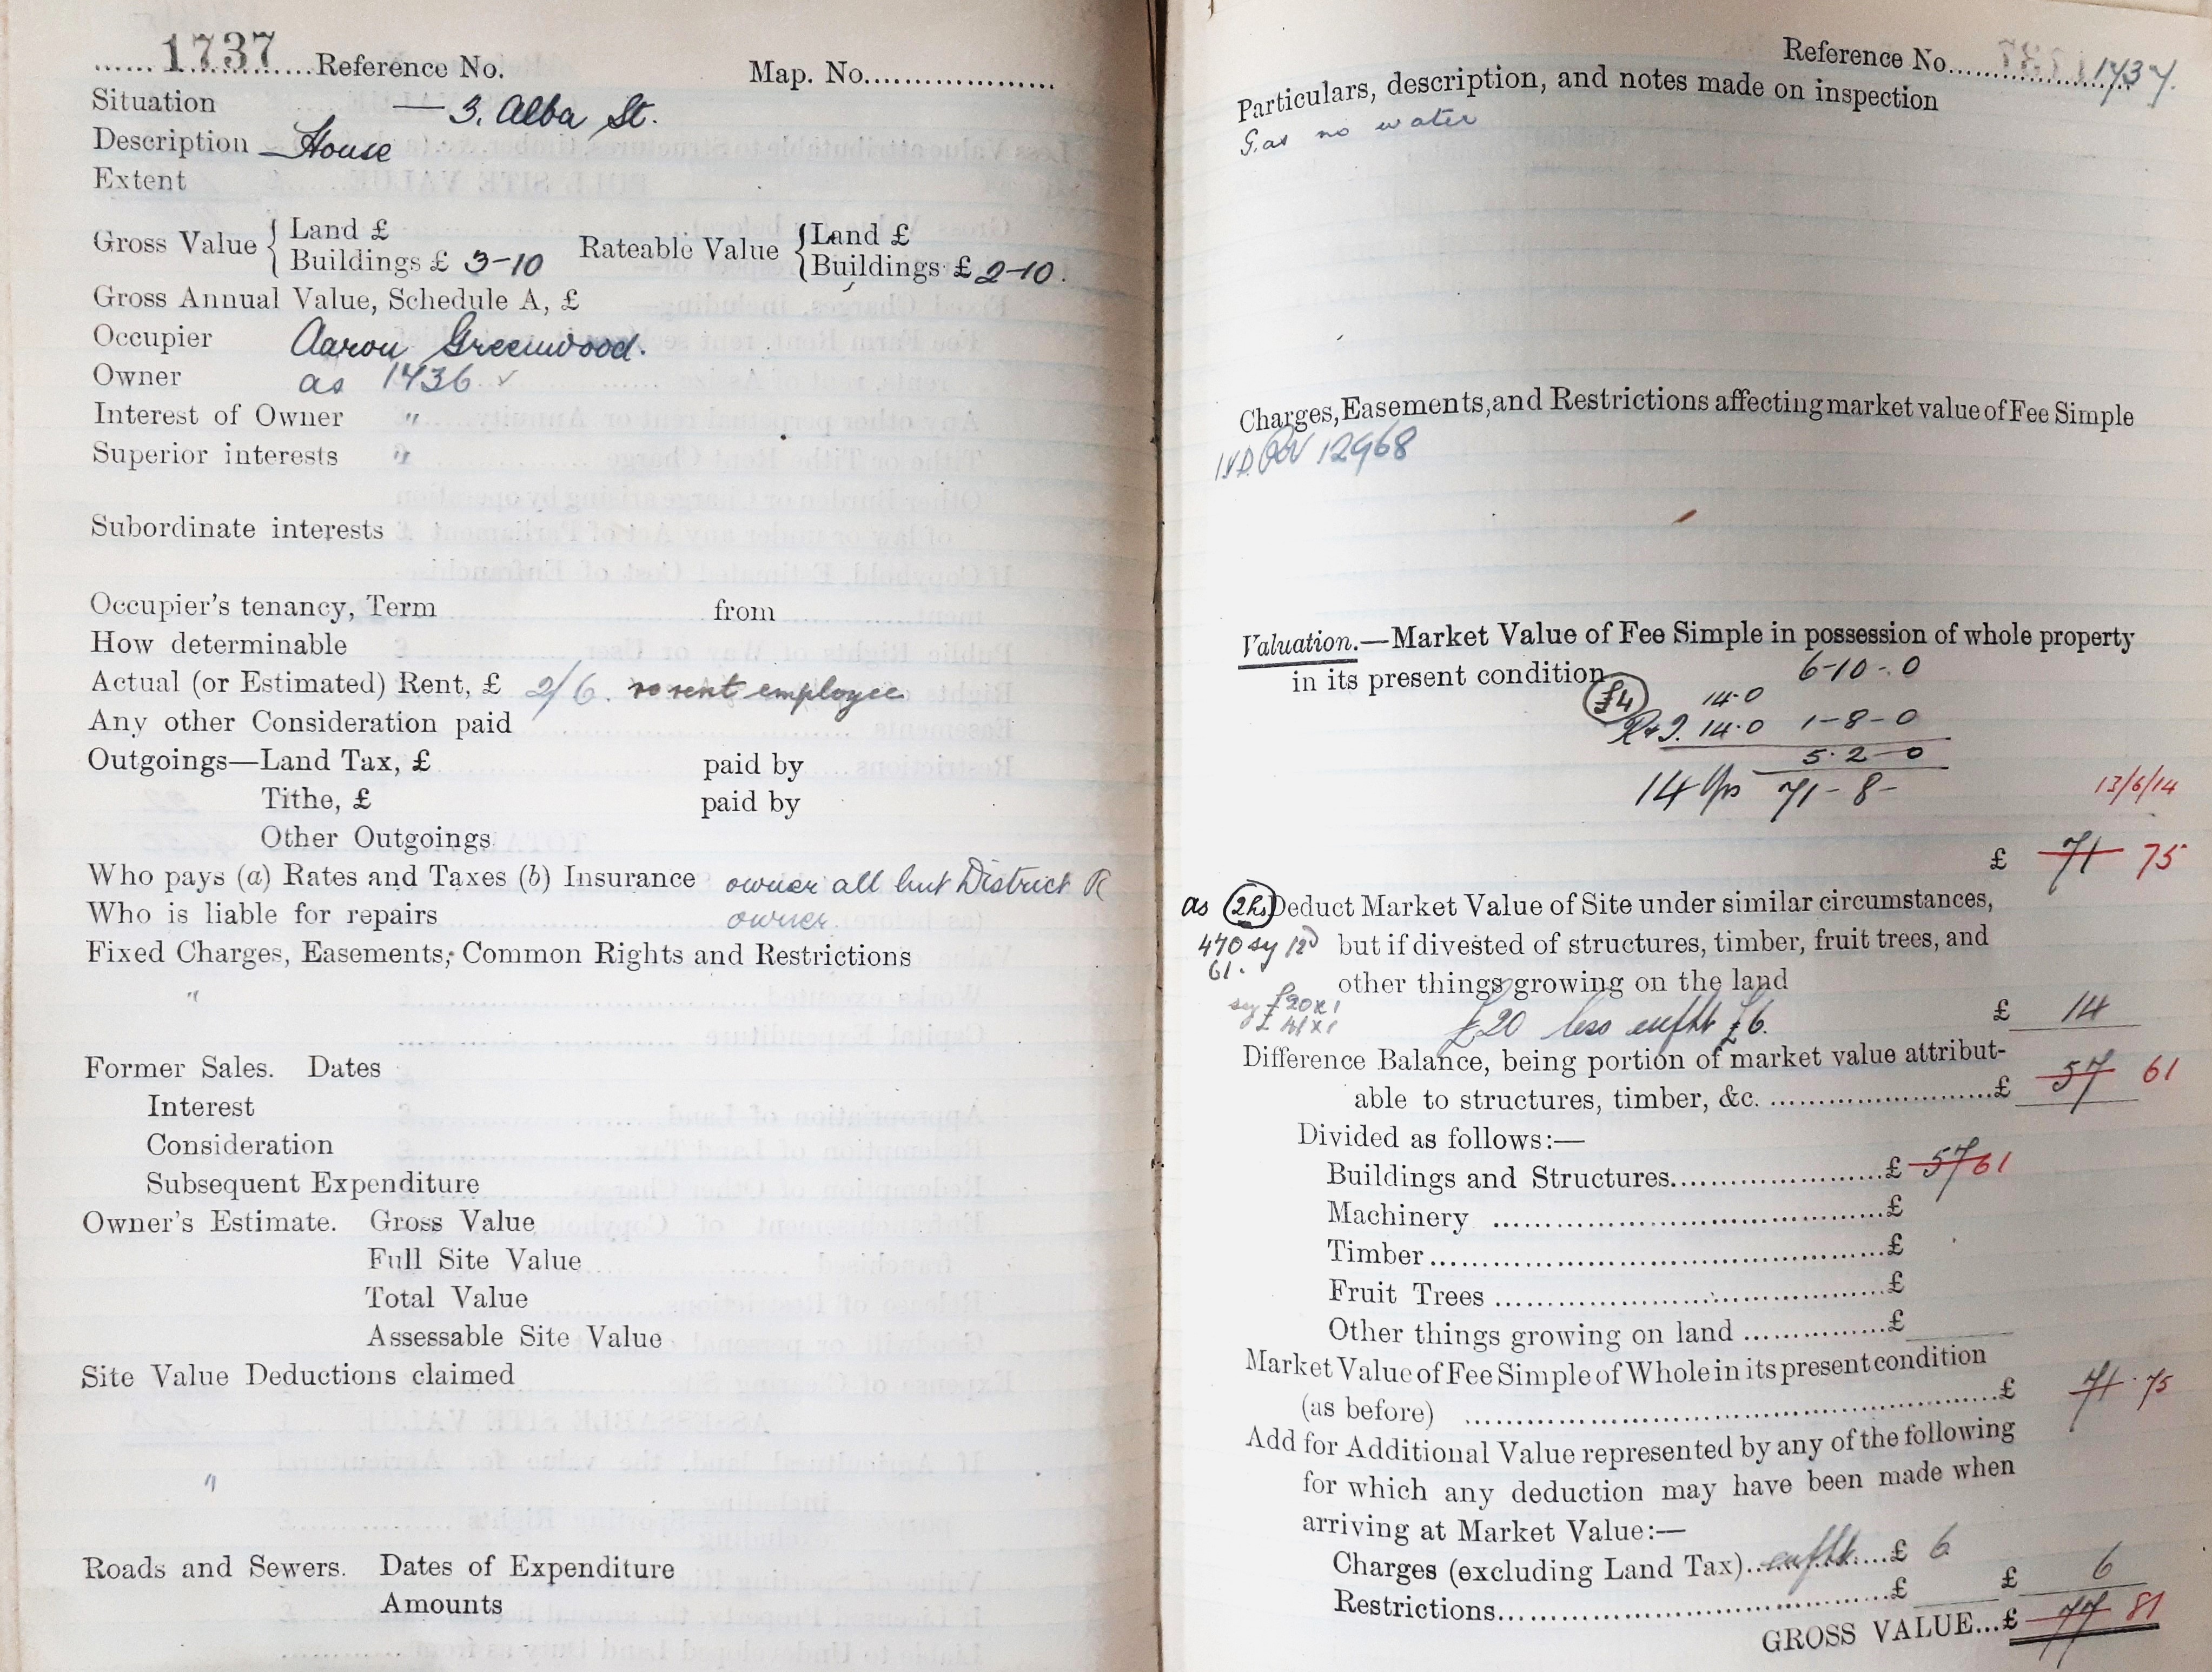 ......1737............Reference No. Map. No....................
Situation — 3. Alba St.
Description House
Extent
Gross Value { Land £ Rateable Value { Land £
Buildings £ 3-10 Buildings £ 2-10.
Gross Annual Value, Schedule A, £
Occupier Aaron Greenwood.
Owner as 1736 ✓
Interest of Owner "
Superior interests "
Subordinate interests
Occupier's tenancy, Term from
How determinable
Actual (or Estimated) Rent, £ 2/6. no rent employee
Any other Consideration paid
Outgoings—Land Tax, £ paid by
Tithe, £ paid by
Other Outgoings
Who pays (a) Rates and Taxes (b) Insurance owner all but District R
Who is liable for repairs owner.
Fixed Charges, Easements, Common Rights and Restrictions
"
Former Sales. Dates
Interest
Consideration
Subsequent Expenditure
Owner's Estimate. Gross Value
Full Site Value
Total Value
Assessable Site Value
Site Value Deductions claimed
"
Roads and Sewers. Dates of Expenditure
Amounts
Reference No.....................1737.
Particulars, description, and notes made on inspection
Gas no water
Charges, Easements, and Restrictions affecting market value of Fee Simple
12968
Valuation.—Market Value of Fee Simple in possession of whole property
in its present condition 6-10-0
£4 14.0
R&I. 14.0 1-8-0
5-2-0
14 Yps 71-8-
13/6/14
£ 71 75
as 2hs Deduct Market Value of Site under similar circumstances,
470 sy 12D but if divested of structures, timber, fruit trees, and
61. other things growing on the land
say £20 x 1
£41 x 1 £20 less enfht £6. £ 14
Difference Balance, being portion of market value attribut-
able to structures, timber, &c. ..........................£ 57 61
Divided as follows:—
Buildings and Structures........................£ 57 61
Machinery ............................................£
Timber...................................................£
Fruit Trees ...........................................£
Other things growing on land ................£
Market Value of Fee Simple of Whole in its present condition
(as before) ............................................................£ 71 75
Add for Additional Value represented by any of the following
for which any deduction may have been made when
arriving at Market Value:—
Charges (excluding Land Tax)..enfht....£ 6
Restrictions..........................................£ £ 6
GROSS VALUE...£ 77 81